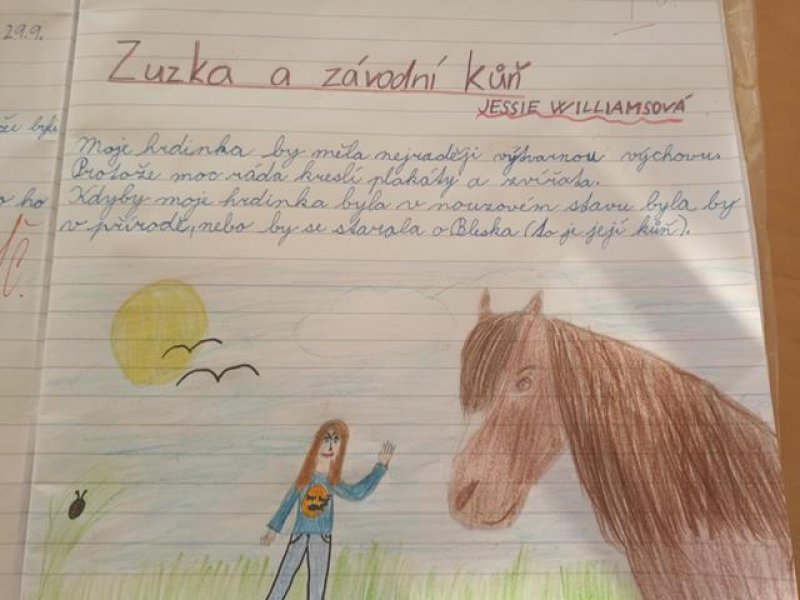 29.9.
Zuzka a závodní kůň
JESSIE WILLIAMSOVÁ
že byli
o ho
Moje hrdinka by měla nejraději výtvarnou výchovu.
Protože moc ráda kreslí plakáty a zvířata.
Kdyby moje hrdinka byla v nouzovém stavu byla by
v přírodě, nebo by se starala o Bleska (to je její kůň).